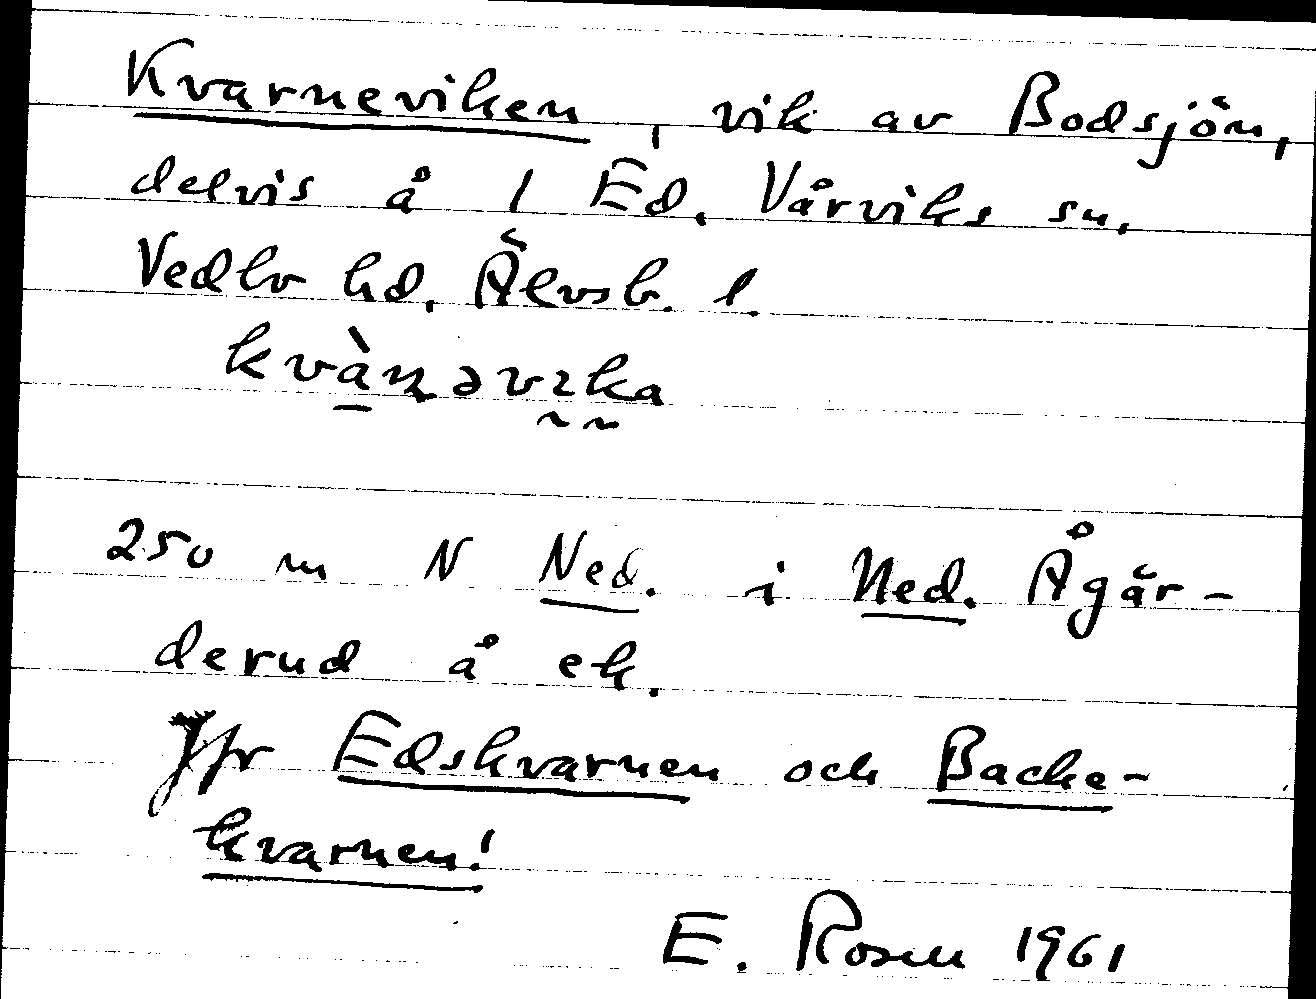 Kvarneviken, vik av Bodsjön,
delvis å 1 Ed. Vårviks sn,
Vedbo hd, Älvsb. l.
kvàɳəvɪka
250 m N Ned. i Ned. Ågär-
derud å ek.
Jfr Edskvarnen och Backe-
kvarnen!
E. Rosell 1961